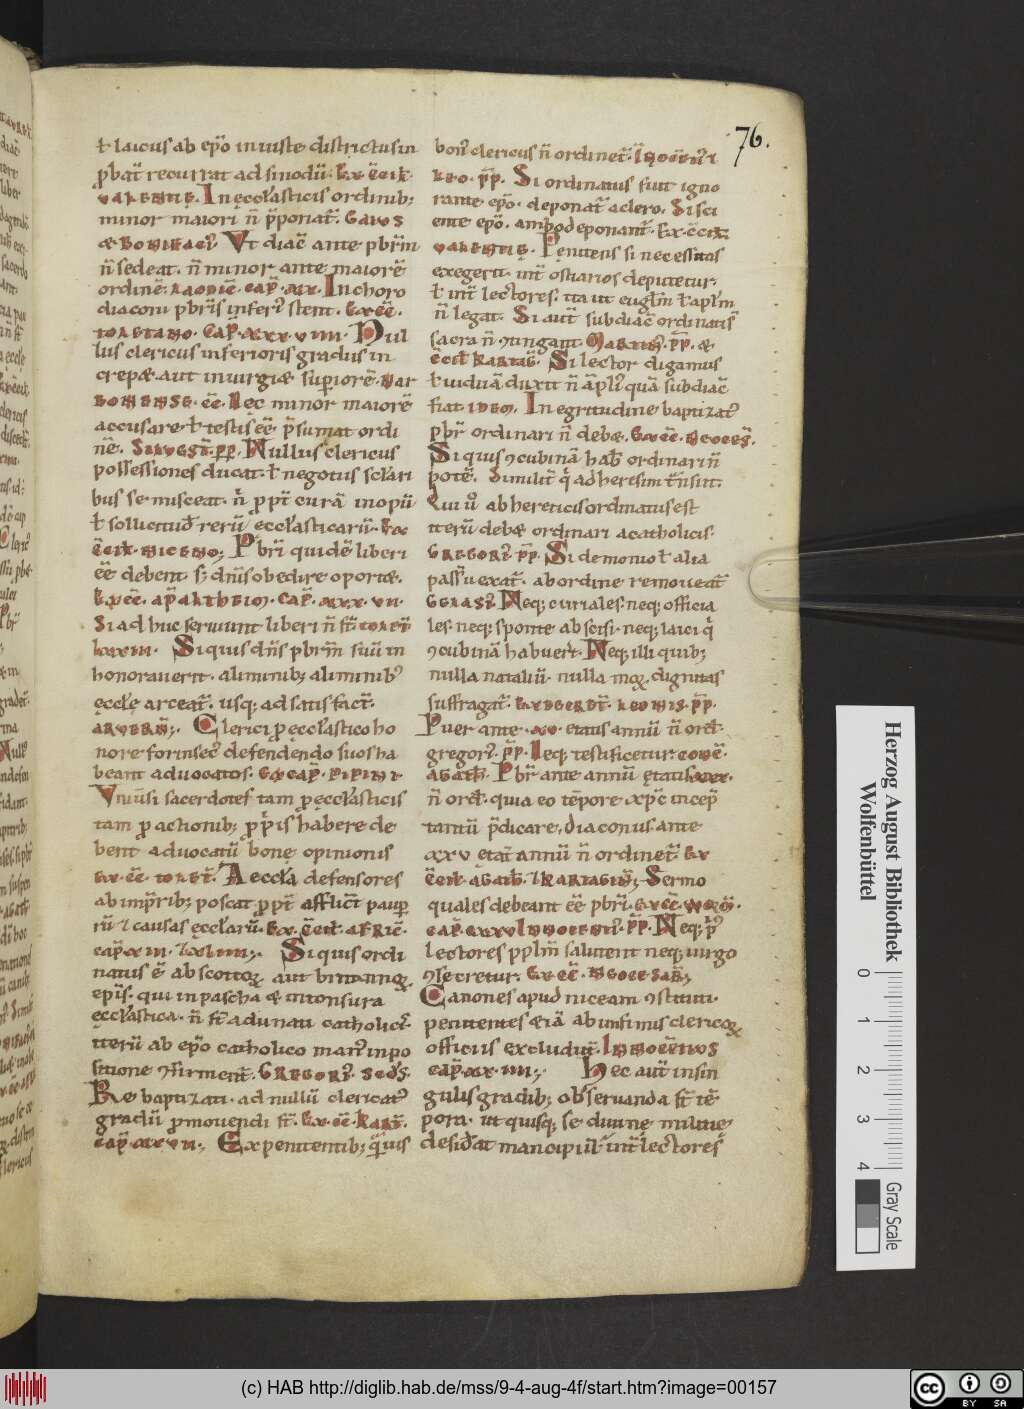 76.
ł laicus ab ep̃o iniuste districtus in
ꝓbat̃ recurrat ad sinodũ. Ex c̃cil̃.
valentie. In ęccl̃asticis ordinib;
minor maiori ñ p̃ponat̃. Gaius
& Bonifaci᾽. Vt diac̃ ante pbr̃m
ñ sedeat. ñ minor ante maiorẽ
ordinẽ. Laodic̃. cap̃. xx. In choro
diaconi pbr̃is inferi᾽ stent. Ex c̃c̃.
toletano. Cap̃. xxx.viiii. Nul
lus clericus inferioris gradus in
crepæ. aut iniurgiæ supiorẽ. Nar
bonense. c̃c̃. Nec minor maiorẽ
accusare ł testis eẽ p̃sumat ordi
nẽ. Silvest̃. pp̃. Nullus clericus
possessiones ducat. ł negotiis sc̃lari
bus se misceat. ñ ꝓpt̃ curã inopũ
ł sollicitud̃ rerũ eccl̃asticarũ. Ex
c̃cil̃. niceno; Pbr̃i quidẽ liberi
eẽ debent s; dñis obedire oportæ.
Ex c̃c̃. ap̃ altheim. Cap̃. xxx.vii.
Si ad huc seruiunt liberi ñ st̃. tolet̃
lxxiii. Si quis dñs pbr̃m suũ in
honorauerit. aliminib; aliminib᾽
ęccl̃ę arceat̃. usq; ad satisfact̃.
Arvern̄;. Clerici ꝓ ęccl̃astico ho
nore forinsec᾽ defendendo suos ha
beant aduocatos. Ex cap̃. Pipini
Vniũsi sacerdotes tam ꝓ ęccl̃asticis
tam ꝓ actionib; ꝓp̃is habere de
bent aduocatũ bonę opinionis
Ex c̃c̃. tolet̃. A eccl̃a defensores
ab imp̃rib; poscat ꝓpt̃ afflict̃ paup
rũ ⁊ causas ęccl̃arũ. Ex c̃cil̃. afric̃.
cap̃ x iii. ⁊ lxliiii;. Si quis ordi
natus ẽ ab scottoꝝ aut brittannoꝝ
epis. qui in pascha & intonsura
ęccl̃astica. ñ st̃ adunati catholici᾽.
iterũ ab ep̃o catholico man᾽ inpo
sitione ꝯfirment̃. Gregori᾽. scd᾽s.
Re baptizati. ad nullũ clericat᾽
gradũ ꝓmouendi st̃. Ex c̃c̃. Kart̃.
cap̃. xxvii;. Ex penitentib; q̃uis
bon᾽ clericus ñ ordinet̃. Inocẽn᾽ i
leo. pp̃. Si ordinatus fuit igno
rante ep̃o. deponat̃ a clero. Si sci
ente ep̃o. ambo deponant̃. Ex c̃cil̃
valentie. Penitens si necessitas
exegerit. int̃ ostiarios deputetur.
ł int̃ lectores. ita ut eugl̃m ł apl̃m
ñ legat. Si aut̃ subdiac̃ ordinatis᾽
sacra ñ ꝯtingant. Martin᾽. pp̃. &
c̃cil̃ Kartag̃. Si lector digamus
ł uiduã duxit ñ ampl᾽ quã subdiac̃
fiat idem. In egritudine baptizat᾽
pbr̃ ordinari ñ debæ. Ex c̃c̃. Neoces᾽.
Si quis ꝯcubinã hab̃ ordinari ñ
potẽ. Similit̃ q̃ ad heresim t̃nsiit.
Qui u᾽ ab hereticis ordinatus est
iterũ debæ ordinari a catholicis.
Gregori᾽ pp̃. Si demonio ł alia
passiu᾽ exat̃. ab ordine remoueat̃
Gelasi᾽. Neq; curiales. neq; officia
les. neq; sponte abscisi. neq; laici q̃
ꝯcubinã habuer̃t. Neq; illi quib;
nulla nataliũ. nulla moꝝ dignitas
suffragat̃. Exdecret̃. Leonis. pp̃.
Puer ante. xv. etatis annũ ñ ord̃.
gregori᾽. pp̃. Neq; testificetur. conc̃.
Agath̃. Pbr̃ ante annũ ętatis xxx.
ñ ord̃. quia eo tẽpore xp̃c incep̃
tantũ p̃dicare. Diaconus ante
xxv ętat̃ annũ ñ ordinet̃. Ex
c̃cil̃. Agath̃. ⁊ Kartagin̄;. Sermo
quales debeant eẽ pbr̃i. Ex c̃c̃. worm̃.
cap̃. xxxv. Innocenti᾽. pp̃. Neq; p᾽
lectores pplm̃ salutent neq; uirgo
ꝯsecretur. Ex c̃c̃. Neocesar̃;.
Canones apud niceam ꝯstituti.
penitentes etiã ab infimis clericoꝝ
officiis excludunt̃. Innocentius
cap̃. xx. iiii;. Hec aut̃ in sin
gulis gradib; obseruanda st̃ tẽ
pora. ut quisq; se diuine militie
desiderat mancipii ł int̃ lectores
Herzog August Bibliothek
Wolfenbüttel
0 1 2 3 4
Gray Scale
(c) HAB http://diglib.hab.de/mss/9-4-aug-4f/start.htm?image=00157
cc BY SA